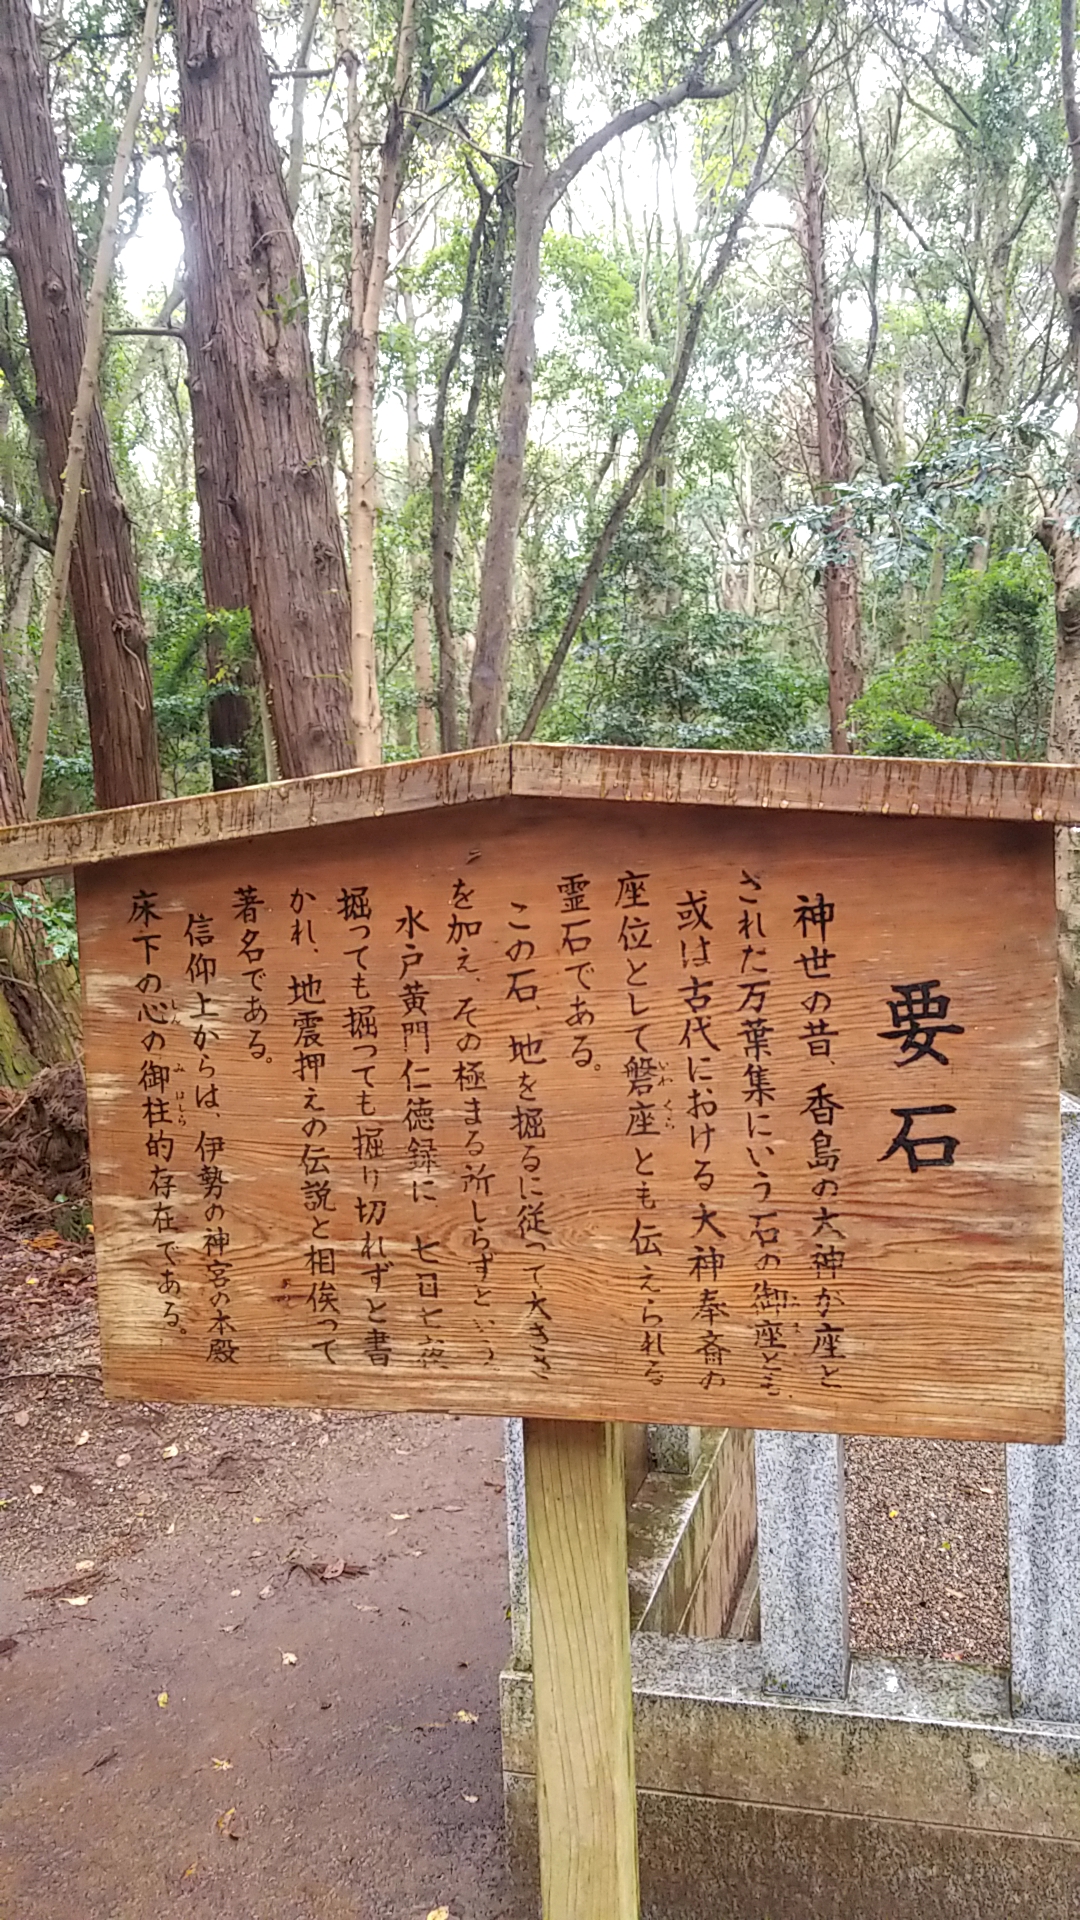 要石
神世の昔、香島の大神が座と
された万葉集にいう石の御座とも、
或は古代における大神奉斎の
座位として磐座とも伝えられる
霊石である。
この石、地を掘るに従って大きさ
を加え、その極まる所しらずという
水戸黄門仁徳録に七日七夜
掘っても掘っても掘り切れずと書
かれ、地震押えの伝説と相俟って
著名である。
信仰上からは、伊勢の神宮の本殿
床下の心の御柱的存在である。